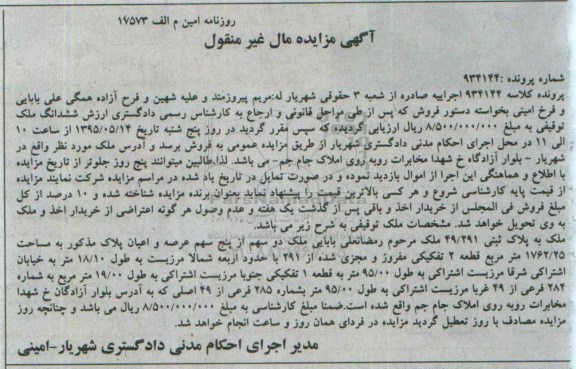 روزنامه امین م الف ۱۷۵۷۳
آگهی مزایده مال غیر منقول
شماره پرونده :۹۳۴۱۴۴
پرونده کلاسه ۹۳۴۱۴۴ اجراییه صادره از شعبه ۳ حقوقی شهریار له:مریم پیروزمند و علیه شهین و فرح آزاده همگی علی بابایی
و فرخ امینی بخواسته دستور فروش که پس از طی مراحل قانونی و ارجاع به کارشناس رسمی دادگستری ارزش ششدانگ ملک
توقیفی به مبلغ ۸/۵۰۰/۰۰۰/۰۰۰ ریال ارزیابی گردیده که سپس مقرر گردید در روز پنج شنبه تاریخ ۱۳۹۵/۰۵/۱۴ از ساعت ۱۰
الی ۱۱ در محل اجرای احکام مدنی دادگستری شهریار از طریق مزایده عمومی به فروش برسد و آدرس ملک مورد نظر واقع در
شهریار - بلوار آزادگاه خ شهدا مخابرات روبه روی املاک جام جم- می باشد. لذا طالبین میتوانند پنج روز جلوتر از تاریخ مزایده
با اطلاع و هماهنگی این اجرا از اموال بازدید نموده و در صورت تمایل در تاریخ یاد شده در مراسم مزایده شرکت نمایند مزایده
از قیمت پایه کارشناسی شروع و هر کسی بالاترین قیمت را پیشنهاد نماید بعنوان برنده مزایده شناخته شده و ۱۰ درصد از کل
مبلغ فروش فی المجلس از خریدار اخذ و باقی پس از گذشت یک هفته و عدم وصول هر گونه اعتراضی از خریدار اخذ و ملک
به وی تحویل خواهد شد. مشخصات ملک توقیفی به شرح زیر می باشد.
ملک به پلاک ثبتی ۴۹/۲۹۱ ملک مرحوم رمضانعلی بابایی ملک دو سهم از پنج سهم عرصه و اعیان پلاک مذکور به مساحت
۱۷۶۲/۲۵ متر مربع قطعه ۲ تفکیکی مفروز و مجزی شده از ۲۹۱ با حدود اربعه شمالا مرزیست به طول ۱۸/۱۰ متر به خیابان
اشتراکی شرقا مرزیست اشتراکی به طول ۹۵/۰۰ متر به قطعه ۱ تفکیکی جنوبا مرزیست اشتراکی به طول ۱۹/۰۰ متر مربع به شماره
۲۸۴ فرعی از ۴۹ غربا مرزیست اشتراکی به طول ۹۵/۰۰ متر بشماره ۲۸۵ فرعی از ۴۹ اصلی که به آدرس بلوار آزادگان خ شهدا
مخابرات روبه روی املاک جام جم واقع شده است.ضمنا مبلغ کارشناسی به مبلغ ۸/۵۰۰/۰۰۰/۰۰۰ ریال می باشد و چنانچه روز
مزایده مصادف با روز تعطیل گردید مزایده در فردای همان روز و ساعت انجام خواهد شد.
مدیر اجرای احکام مدنی دادگستری شهریار-امینی